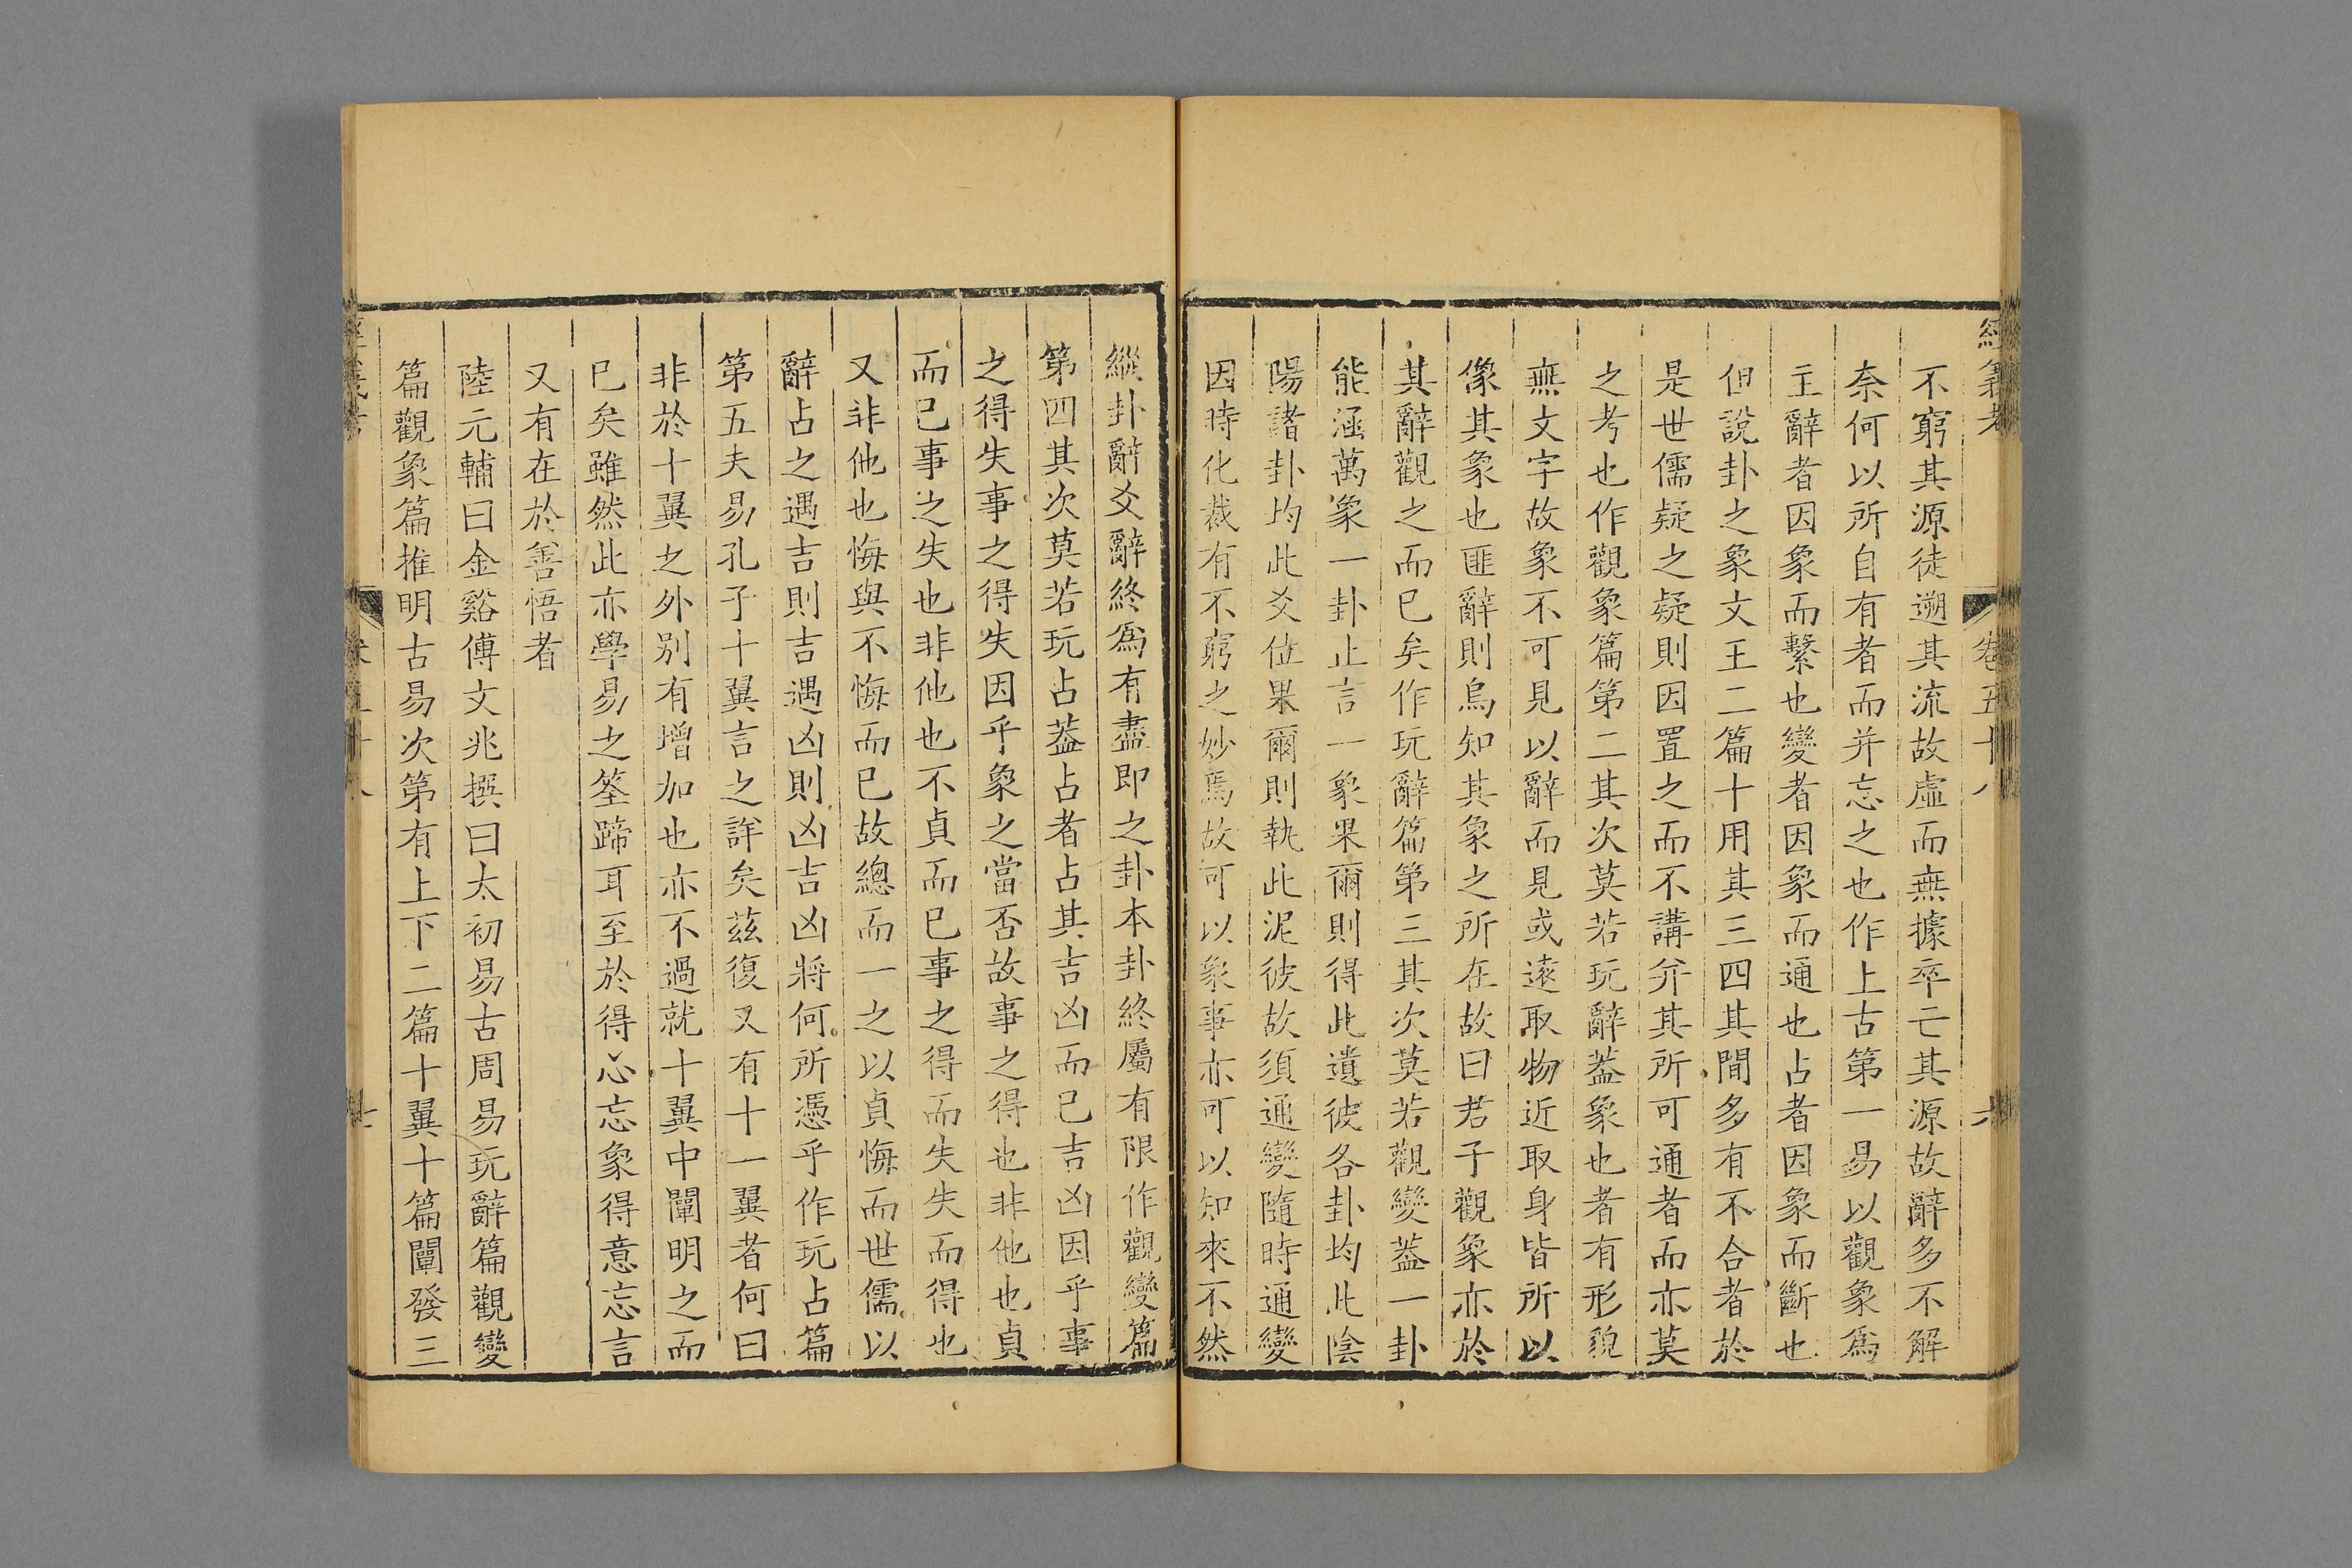 經義考 卷五十八 六
不窮其源徒遡其流故虛而無據卒亡其源故辭多不解
奈何以所自有者而并忘之也作上古第一易以觀象爲
主辭者因象而繫也變者因象而通也占者因象而斷也
但說卦之象文王二篇十用其三四其間多有不合者於
是世儒疑之疑則因置之而不講并其所可通者而亦莫
之考也作觀象篇第二其次莫若玩辭葢象也者有形貌
無文字故象不可見以辭而見或遠取物近取身皆所以
像其象也匪辭則烏知其象之所在故曰君子觀象亦於
其辭觀之而已矣作玩辭篇第三其次莫若觀變葢一卦
能涵萬象一卦止言一象果爾則得此遺彼各卦均此陰
陽諸卦均此爻位果爾則執此泥彼故須通變隨時通變
因時化裁有不窮之妙焉故可以象事亦可以知來不然
縱卦辭爻辭終爲有盡即之卦本卦終屬有限作觀變篇
第四其次莫若玩占葢占者占其吉凶而已吉凶因乎事
之得失事之得失因乎象之當否故事之得也非他也貞
而已事之失也非他也不貞而已事之得而失失而得也
又非他也悔與不悔而已故總而一之以貞悔而世儒以
辭占之遇吉則吉遇凶則凶吉凶將何所憑乎作玩占篇
第五夫易孔子十翼言之詳矣茲復又有十一翼者何曰
非於十翼之外别有增加也亦不過就十翼中闡明之而
已矣雖然此亦學易之筌蹄耳至於得心忘象得意忘言
又有在於善悟者
陸元輔曰金谿傅文兆撰曰太初易古周易玩辭篇觀變
篇觀象篇推明古易次第有上下二篇十翼十篇闡發三